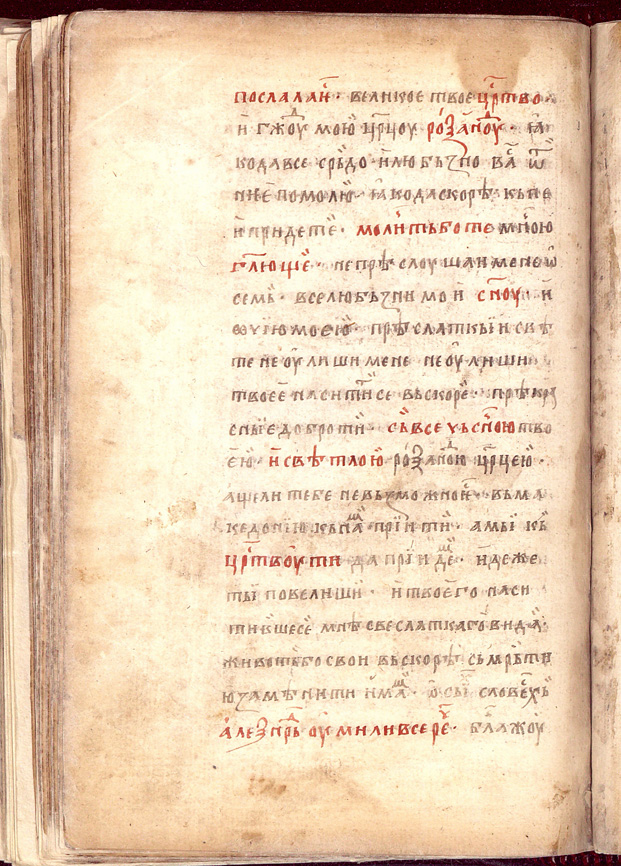 послалаꙗ҆· великое твое црⷭ҇тво·
и҆ гж҇оу мою црⷭ҇цоу ро́ѯаⷣноу· ꙗ҆
кода все срⷣьдо· и҆ любьꙁно ва ѿ
нѥ помолю· ꙗ҆кода скорѣ къне
и҆ придете· молит бо те мною
гл҃юще· не прѣслоушаи мене ѡ
семь· вселюбьꙁни мои сн҃оу· и҆
ѡчию моею· прѣслаткыи свѣ
те не оу лиши мене не оу лиши
твоее насити се вьскоре· прѣкра
сные доброти· съ всехь сн҃ою тво
ею· и҆ свѣтлою роѯаⷣною црⷭ҇цею·
аще ли тебе невьꙁможно ѥ· вьма
кедонїю кьна прїити· а мы кь
црⷭ҇твоу ти да прїиде· и҆деже
ты повелиши· и҆ твоего наси
тившесе мнѣ свеслаткаго вида·
животь бо свои вьскорѣ сьмрьти
ю ꙁамѣнити имаⷨ· ѿ сы словехь
а҆леѯⷣнрь оумиливсе ре· бл҃ажоу